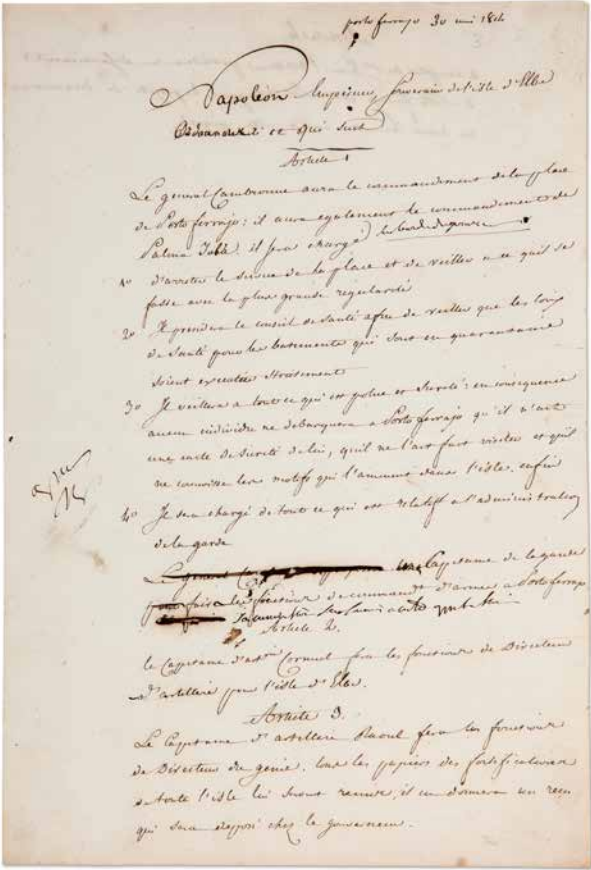 porto ferrajo 30 mai 1814
Napoléon Empereur, Souverain de l'isle d'Elbe
Ordonnons ce qui suit
Article 1
Le general Cambronne aura le commandement de la place
de Porto ferrajo: il aura egalement le commandement de
Palma il sera chargé
1o d'arreter le service de la place et de veiller a ce qu'il se
fasse avec la plus grande regularité
2o Il prendra le conseil de santé afin de veiller que les loix
de santé pour les batiments qui sont en quarantaine
soient executées strictement
3o Il veillera a tout ce qui est police et sureté: en consequence
aucun individu ne debarquera a Porto ferrajo qu'il n'ait
une carte de sureté de lui, qu'il ne l'ait fait visiter et qu'il
ne connoisse les motifs qui l'amenent dans l'isle. enfin
4o Il sera chargé de tout ce qui est relatif a l'administration
de la garde
Le general un Capitaine de la garde
fera les fonctions de commandt d'armes a Porto ferrajo
Article 2.
le Capitaine d'artrie Cornuel fera les fonctions de Directeur
d'artillerie pour l'isle d'Elbe.
Article 3.
Le Capitaine d'artillerie Raoul fera les fonctions
de Directeur du genie. tous les papiers des fortifications
de toute l'isle lui seront remis, il en donnera un recu
qui sera deposé chez le gouverneur.